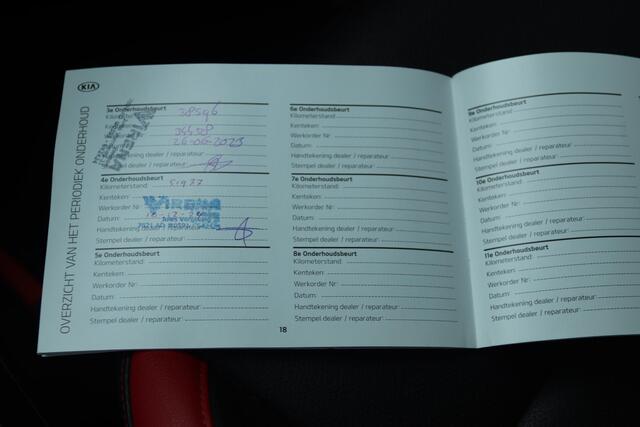 KIA
OVERZICHT VAN HET PERIODIEK ONDERHOUD
3e Onderhoudsbeurt
38596
Kenteken:
Werkorder
26-06-2023
Handtekening dealer / reparateur:
Stempel dealer / reparateur:
4e Onderhoudsbeurt
Kilometerstand:
51977
Kenteken:
Werkorder Nr:
Datum:
Handtekening dealer / reparateur
Stempel dealer / reparateur:
VIRENA
5e Onderhoudsbeurt
Kilometerstand:
Kenteken:
Werkorder Nr:
Datum:
Handtekening dealer / reparateur:
Stempel dealer / reparateur:
6e Onderhoudsbeurt
Kilometerstand:
Kenteken:
Werkorder Nr:
Datum:
Handtekening dealer / reparateur:
Stempel dealer / reparateur:
7e Onderhoudsbeurt
Kilometerstand:
Kenteken:
Werkorder Nr:
Datum:
Handtekening dealer / reparateur:
Stempel dealer / reparateur:
8e Onderhoudsbeurt
Kilometerstand:
Kenteken:
Werkorder Nr:
Datum:
Handtekening dealer / reparateur:
Stempel dealer / reparateur:
18
9e Onderhoudsbeurt
Kilometerstand:
Kenteken:
Werkorder Nr:
Datum:
Handtekening dealer / reparateur:
Stempel dealer / reparateur:
10e Onderhoudsbeurt
Kilometerstand:
Kenteken:
Werkorder Nr:
Datum:
Handtekening dealer / reparateur:
Stempel dealer / reparateur:
11e Onderhoudsbeurt
Kilometerstand:
Kenteken:
Werkorder Nr:
Datum:
Handtekening dealer / reparateur:
Stempel dealer / reparateur: